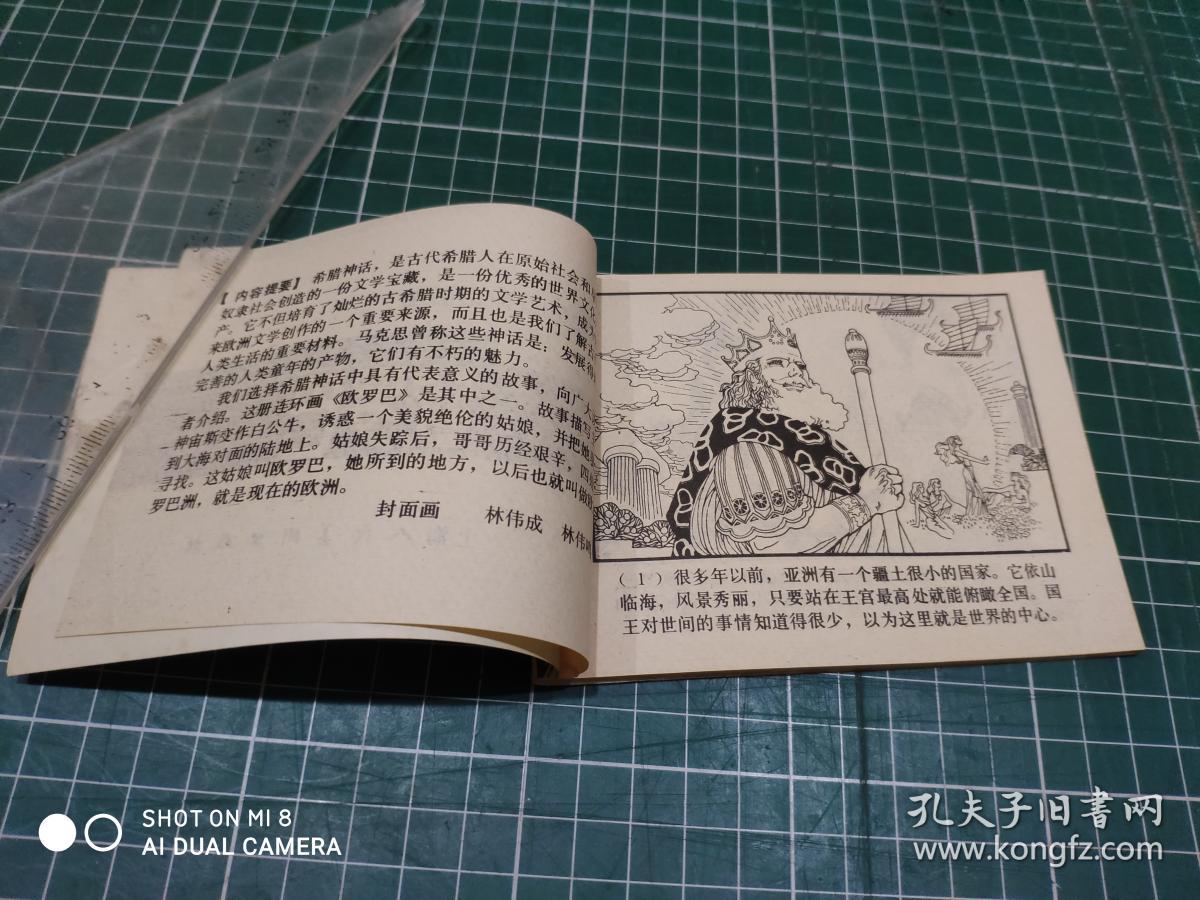 【内容提要】 希腊神话，是古代希腊人在原始社会和
奴隶社会创造的一份文学宝藏，是一份优秀的世界文化
产。它不但培育了灿烂的古希腊时期的文学艺术，成
来欧洲文学创作的一个重要来源，而且也是我们了解
人类生活的重要材料。马克思曾称这些神话是：发展得
完善的人类童年的产物，它们有不朽的魅力。
我们选择希腊神话中具有代表意义的故事，向广大
者介绍。这册连环画《欧罗巴》是其中之一。故事描写
神宙斯变作白公牛，诱惑一个美貌绝伦的姑娘，并把她
到大海对面的陆地上。姑娘失踪后，哥哥历经艰辛，四
寻找。这姑娘叫欧罗巴，她所到的地方，以后也就叫做
罗巴洲，就是现在的欧洲。
封面画 林伟成 林伟
（1）很多年以前，亚洲有一个疆土很小的国家。它依山
临海，风景秀丽，只要站在王宫最高处就能俯瞰全国。国
王对世间的事情知道得很少，以为这里就是世界的中心。
SHOT ON MI 8
AI DUAL CAMERA
孔夫子旧書网
www.kongfz.com